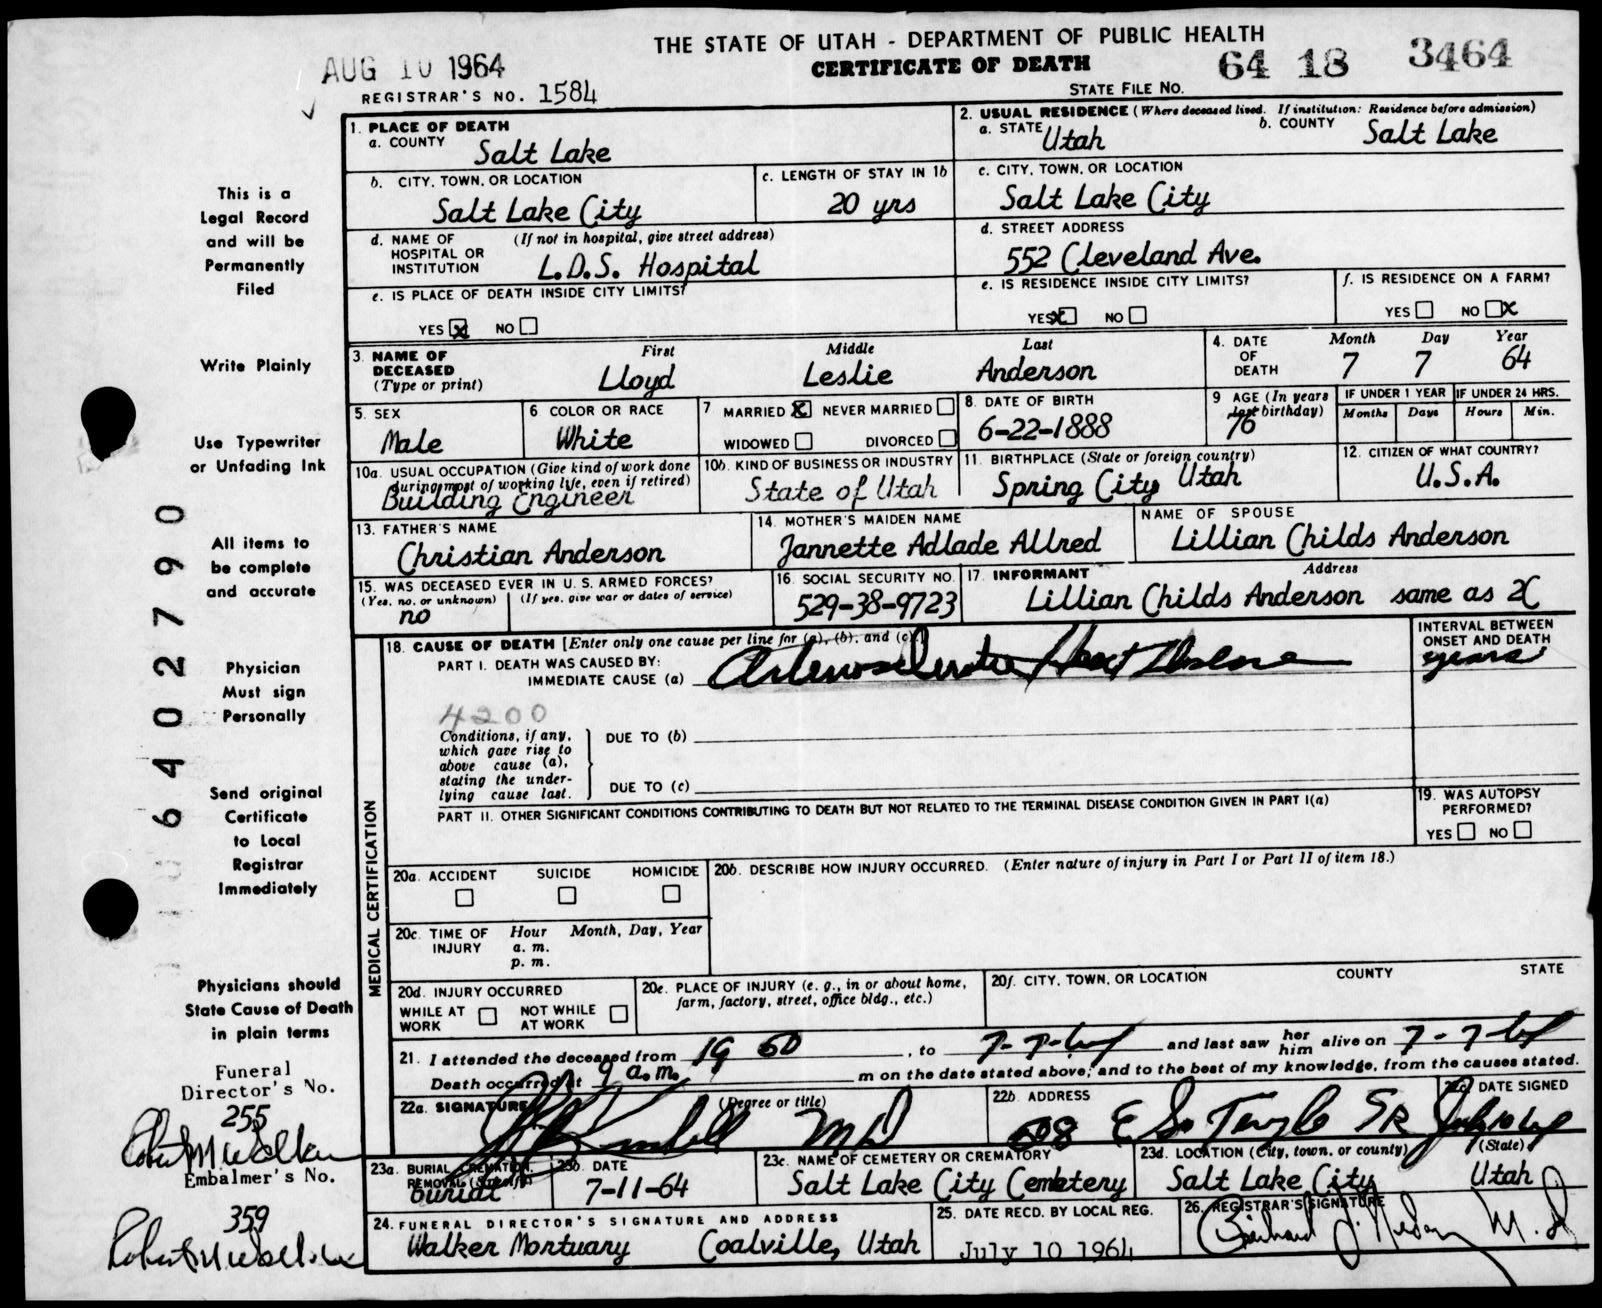 THE STATE OF UTAH - DEPARTMENT OF PUBLIC HEALTH
CERTIFICATE OF DEATH
AUG 10 1964
64 18 3464
REGISTRAR'S NO. 1584
STATE FILE No.
1. PLACE OF DEATH
a. COUNTY Salt Lake
2. USUAL RESIDENCE (Where deceased lived. If institution: Residence before admission)
a. STATE Utah b. COUNTY Salt Lake
b. CITY, TOWN, OR LOCATION
Salt Lake City
c. LENGTH OF STAY IN 1b
20 yrs
c. CITY, TOWN, OR LOCATION
Salt Lake City
d. NAME OF HOSPITAL OR INSTITUTION (If not in hospital, give street address)
L.D.S. Hospital
d. STREET ADDRESS
552 Cleveland Ave.
e. IS PLACE OF DEATH INSIDE CITY LIMITS?
YES X NO
e. IS RESIDENCE INSIDE CITY LIMITS?
YES X NO
f. IS RESIDENCE ON A FARM?
YES NO X
3. NAME OF DECEASED (Type or print)
First Middle Last
Lloyd Leslie Anderson
4. DATE OF DEATH
Month Day Year
7 7 64
5. SEX
Male
6 COLOR OR RACE
White
7 MARRIED X NEVER MARRIED
WIDOWED DIVORCED
8. DATE OF BIRTH
6-22-1888
9 AGE (In years last birthday)
76
IF UNDER 1 YEAR IF UNDER 24 HRS.
Months Days Hours Min.
10a. USUAL OCCUPATION (Give kind of work done during most of working life, even if retired)
Building Engineer
10b. KIND OF BUSINESS OR INDUSTRY
State of Utah
11. BIRTHPLACE (State or foreign country)
Spring City Utah
12. CITIZEN OF WHAT COUNTRY?
U.S.A.
13. FATHER'S NAME
Christian Anderson
14. MOTHER'S MAIDEN NAME
Jannette Adlade Allred
NAME OF SPOUSE
Lillian Childs Anderson
15. WAS DECEASED EVER IN U.S. ARMED FORCES?
(Yes, no, or unknown) (If yes, give war or dates of service)
no
16. SOCIAL SECURITY NO.
529-38-9723
17. INFORMANT Address
Lillian Childs Anderson same as 2C
18. CAUSE OF DEATH [Enter only one cause per line for (a), (b), and (c).]
PART I. DEATH WAS CAUSED BY:
IMMEDIATE CAUSE (a) Arteriosclerotic Heart Disease
INTERVAL BETWEEN ONSET AND DEATH
years
4200
Conditions, if any, which gave rise to above cause (a), stating the underlying cause last.
DUE TO (b)
DUE TO (c)
PART II. OTHER SIGNIFICANT CONDITIONS CONTRIBUTING TO DEATH BUT NOT RELATED TO THE TERMINAL DISEASE CONDITION GIVEN IN PART I(a)
19. WAS AUTOPSY PERFORMED?
YES NO
MEDICAL CERTIFICATION
20a. ACCIDENT SUICIDE HOMICIDE
20b. DESCRIBE HOW INJURY OCCURRED. (Enter nature of injury in Part I or Part II of item 18.)
20c. TIME OF INJURY Hour Month, Day, Year
a. m.
p. m.
20d. INJURY OCCURRED
WHILE AT WORK NOT WHILE AT WORK
20e. PLACE OF INJURY (e. g., in or about home, farm, factory, street, office bldg., etc.)
20f. CITY, TOWN, OR LOCATION COUNTY STATE
21. I attended the deceased from 19 60, to 7-7-64 and last saw her him alive on 7-7-64
Death occurred at 9 a.m. m on the date stated above, and to the best of my knowledge, from the causes stated.
22a. SIGNATURE (Degree or title)
Kimball MD
22b. ADDRESS
508 E So Temple
22c. DATE SIGNED
23a. BURIAL, CREMATION, REMOVAL (Specify)
Burial
23b. DATE
7-11-64
23c. NAME OF CEMETERY OR CREMATORY
Salt Lake City Cemetery
23d. LOCATION (City, town, or county) (State)
Salt Lake City Utah
24. FUNERAL DIRECTOR'S SIGNATURE AND ADDRESS
Walker Mortuary Coalville, Utah
25. DATE RECD. BY LOCAL REG.
July 10 1964
26. REGISTRAR'S SIGNATURE
M.D
This is a
Legal Record
and will be
Permanently
Filed
Write Plainly
Use Typewriter
or Unfading Ink
All items to
be complete
and accurate
Physician
Must sign
Personally
Send original
Certificate
to Local
Registrar
Immediately
Physicians should
State Cause of Death
in plain terms
Funeral
Director's No.
255
Embalmer's No.
359
64 0 2790